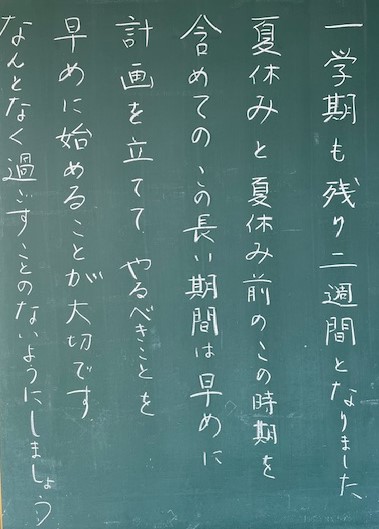 一学期も残り二週間となりました、
夏休みと夏休み前のこの時期を
含めてのこの長い期間は早めに
計画を立てて やるべきことを
早めに始めることが大切です
なんとなく過ごすことのないようにしましょう